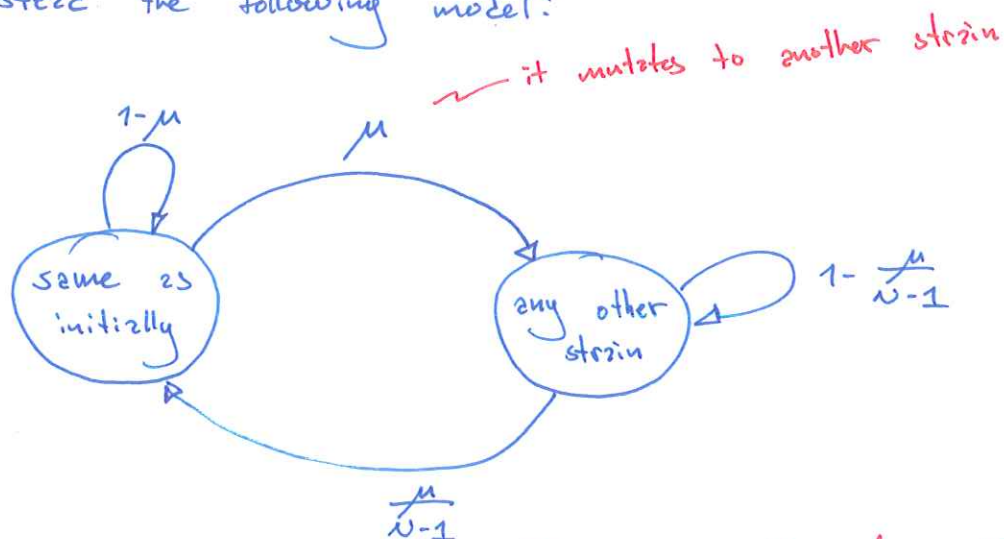 the following model:
it mutates to another strain
1-μ
μ
same as
initially
any other
strain
1 - μ/(N-1)
μ/(N-1)